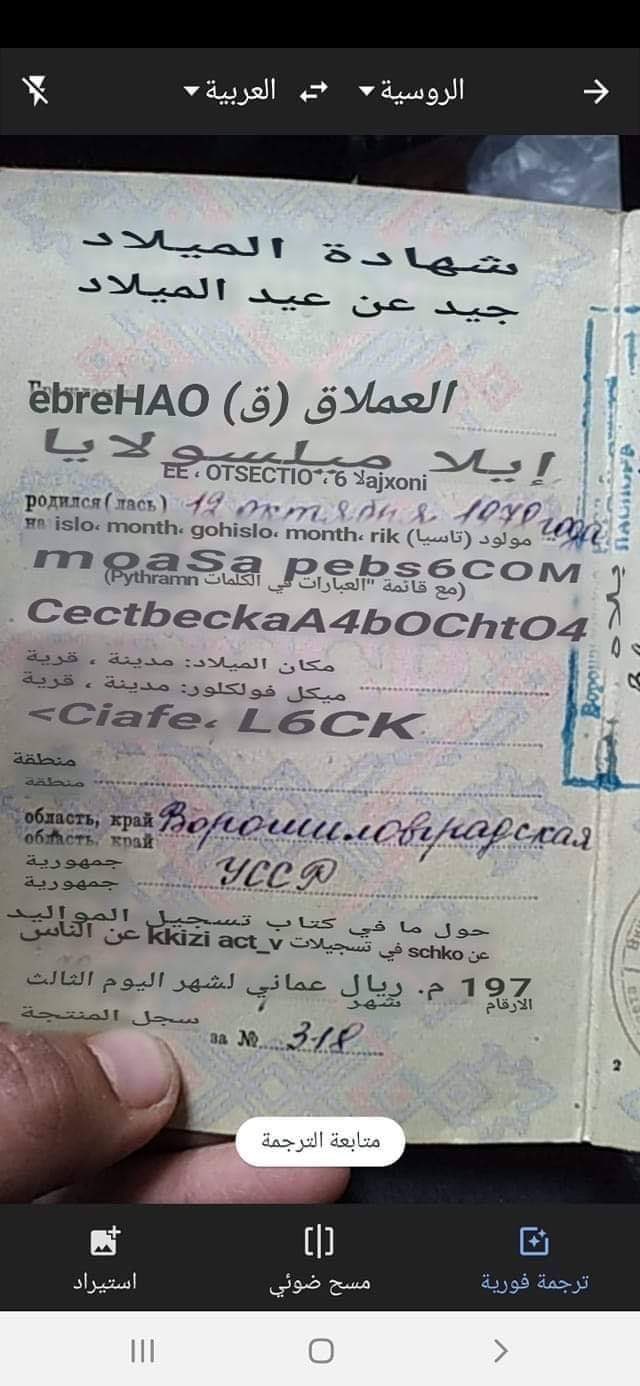 الروسية
العربية
شهادة الميلاد
جيد عن عيد الميلاد
العملاق (ق) ebreHAO
إيلا ميلسولايا
EE ، OTSECTIO
родился (лась) 12 октября 1970 года
на islo، month، gohislo، month، rik (تاسيا) مولود
moaSa pebs6COM
(مع قائمة "العبارات في الكلمات Pythramn)
CectbeckaA4bOChtO4
مكان الميلاد: مدينة ، قرية
ميكل فولكلور: مدينة ، قرية
<Ciafe، L6CK
منطقة
منطقة
область, край Ворошиловградская
область, край
جمهورية
УССР
جمهورية
حول ما في كتاب تسجيل المواليد
عن schko في تسجيلات kkizi act_v عن الناس
197 م. ريال عماني لشهر اليوم الثالث
الأرقام
شهر
سجل المنتجة
за № 318
2
متابعة الترجمة
ترجمة فورية
مسح ضوئي
استيراد